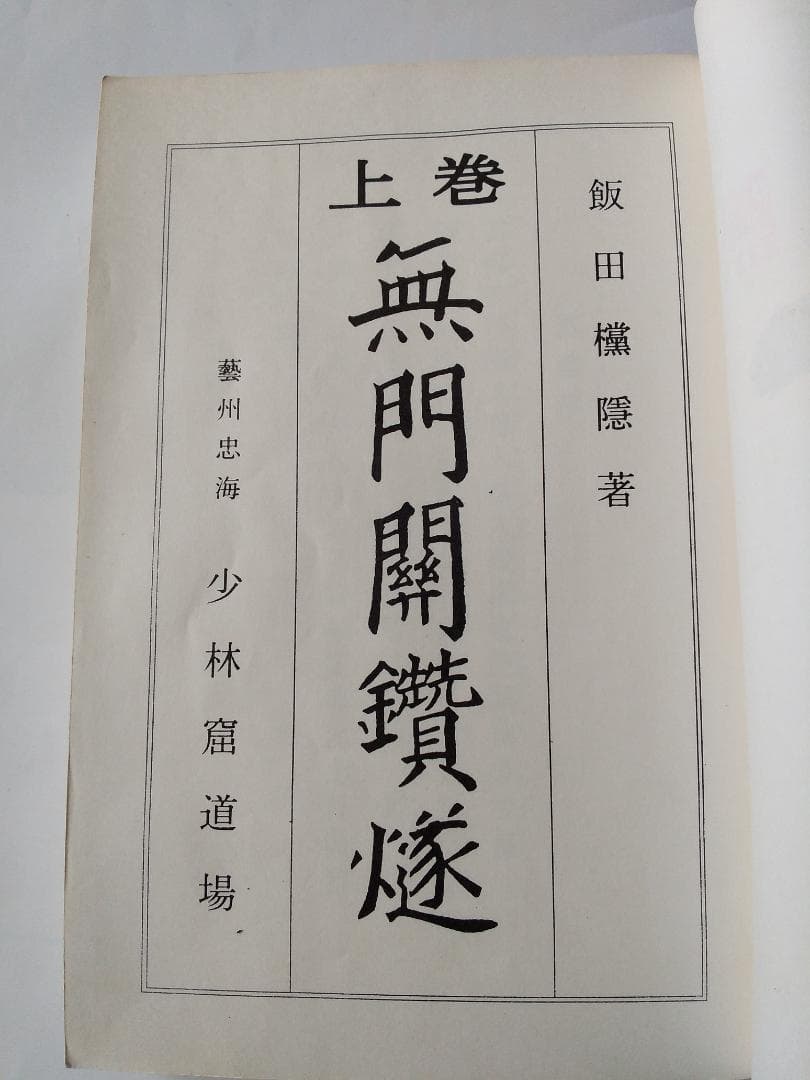 飯田欓隱著
巻上
無門關鑽燧
藝州忠海 少林窟道場